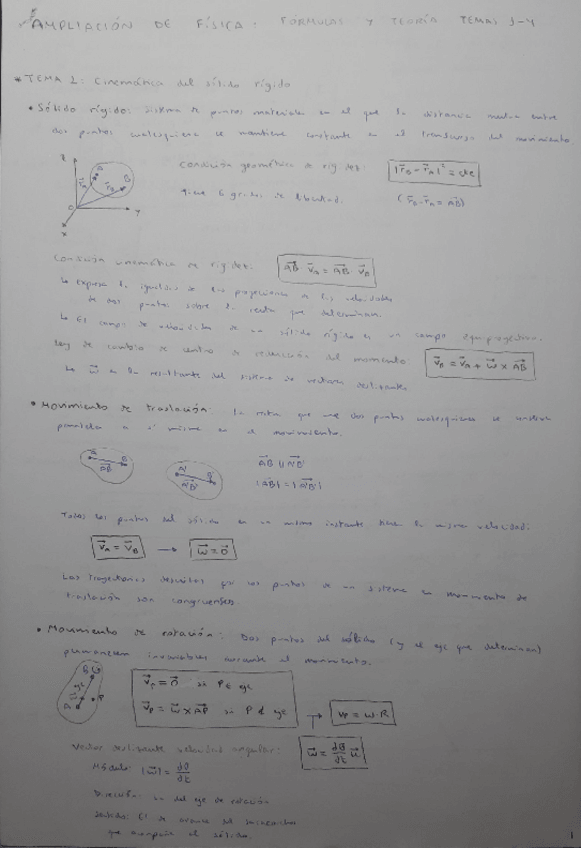 AMPLIACIÓN DE FÍSICA: FÓRMULAS Y TEORÍA TEMAS 1-4
* TEMA 1: Cinemática del sólido rígido
• Sólido rígido: sistema de puntos materiales en el que la distancia mutua entre
dos puntos cualesquiera se mantiene constante en el transcurso del movimiento.
Z A B r⃗A r⃗B O Y X
Condición geométrica de rigidez: |r⃗B - r⃗A|² = cte
Tiene 6 grados de libertad. (r⃗B - r⃗A = AB⃗)
Condición cinemática de rigidez: AB⃗ · v⃗A = AB⃗ · v⃗B
↳ Expresa la igualdad de las proyecciones de las velocidades
de dos puntos sobre la recta que determinan.
↳ El campo de velocidades de un sólido rígido es un campo equiproyectivo.
Ley de cambio de centro de reducción del momento: v⃗B = v⃗A + w⃗ x AB⃗
↳ w⃗ es la resultante del sistema de vectores deslizantes
• Movimiento de traslación: la recta que une dos puntos cualesquiera se mantiene
paralela a sí misma en el movimiento.
A B AB⃗ A' B' A'B'⃗ AB⃗ || A'B'⃗
|AB⃗| = |A'B'⃗|
Todos los puntos del sólido en un mismo instante tienen la misma velocidad:
v⃗A = v⃗B → w⃗ = 0⃗
Las trayectorias descritas por los puntos de un sistema en movimiento de
traslación son congruentes.
• Movimiento de rotación: Dos puntos del sólido (y el eje que determinan)
permanecen invariables durante el movimiento.
B eje A R P
v⃗P = 0⃗ si P ∈ eje
v⃗P = w⃗ x AP⃗ si P ∉ eje → vP = w · R
Vector deslizante velocidad angular: w⃗ = dθ/dt u⃗
Módulo: |w⃗| = dθ/dt
Dirección: la del eje de rotación
Sentido: el de avance del sacacorchos
que acompaña al sólido.
1